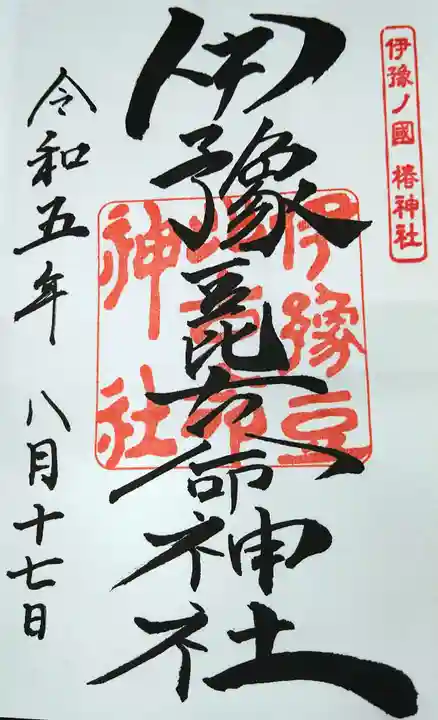 伊豫ノ國 椿神社
伊豫豆比古命神社
伊豫豆
比古命
神社
令和五年 八月十七日